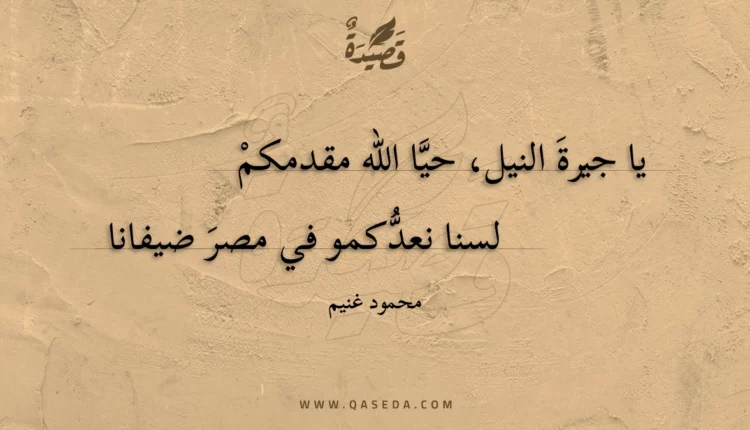 قَصِيدَةٌ
يا جيرةَ النيل، حيَّا الله مقدمكمْ
لسنا نعدُّكمو في مصرَ ضيفانا
محمود غنيم
WWW.QASEDA.COM